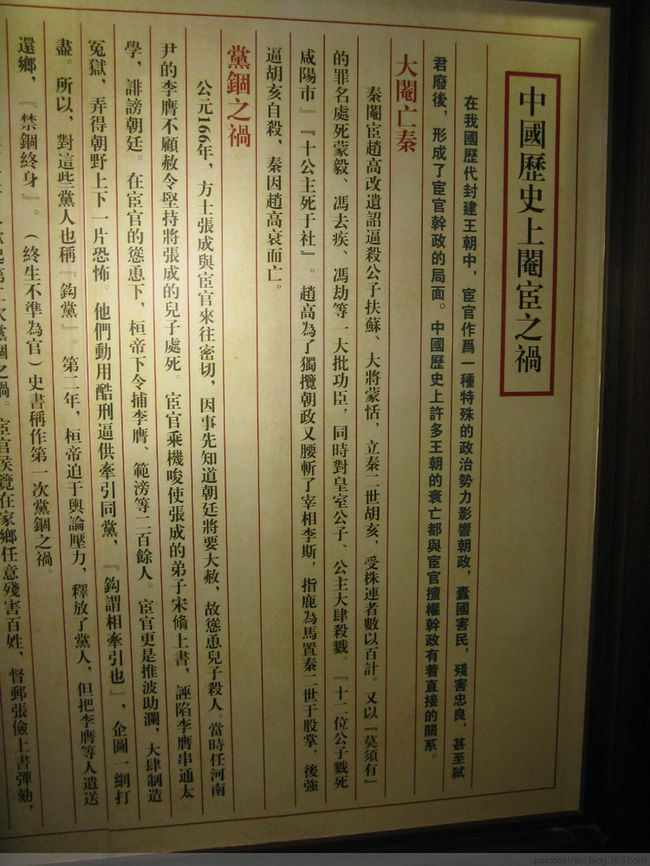 中國歷史上閹宦之禍
在我國歷代封建王朝中，宦官作爲一種特殊的政治勢力影響朝政，蠹國害民，殘害忠良，甚至弒
君廢後，形成了宦官幹政的局面。中國歷史上許多王朝的衰亡都與宦官擅權幹政有着直接的關系。
大閹亡秦
秦閹宦趙高改遺詔逼殺公子扶蘇、大將蒙恬，立秦二世胡亥，受株連者數以百計。又以『莫須有』
的罪名處死蒙毅、馮去疾、馮劫等一大批功臣，同時對皇室公子、公主大肆殺戮。『十二位公子戮死
咸陽市』『十公主死于社』。趙高為了獨攬朝政又腰斬了宰相李斯，指鹿為馬置秦二世于股掌，後強
逼胡亥自殺，秦因趙高衰而亡。
黨錮之禍
公元166年，方士張成與宦官來往密切，因事先知道朝廷將要大赦，故慫恿兒子殺人。當時任河南
尹的李膺不顧赦令堅持將張成的兒子處死。宦官乘機唆使張成的弟子宋脩上書，誣陷李膺串通太
學，誹謗朝廷。在宦官的慫恿下，桓帝下令捕李膺、範滂等二百餘人。宦官更是推波助瀾，大肆制造
冤獄，弄得朝野上下一片恐怖。他們動用酷刑逼供牽引同黨，『鈎謂相牽引也』，企圖一網打
盡。所以，對這些黨人也稱『鈎黨』。第二年，桓帝迫于輿論壓力，釋放了黨人，但把李膺等人遣送
還鄉，『禁錮終身』。（終生不準為官）史書稱作第一次黨錮之禍。
起第二次黨錮之禍。宦官侯覽在家鄉任意殘害百姓，督郵張儉上書彈劾，
paicboxinan.blog.163.com